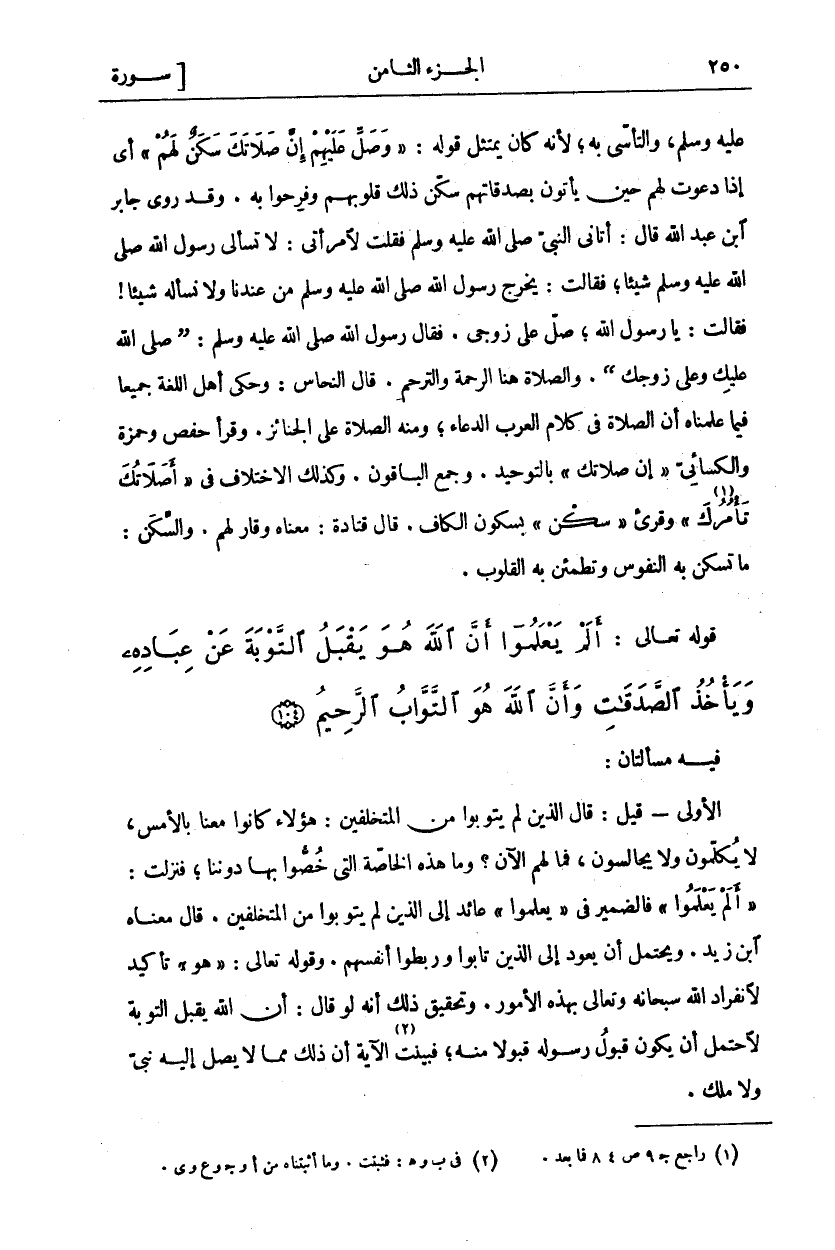 ٢٥٠ الجـــزء الثـامن [ ســـورة
عليه وسلم، والتأسّى به؛ لأنه كان يمتثل قوله : « وَصَلِّ عَلَيْهِمْ إِنَّ صَلَاتَكَ سَكَنٌ لَهُمْ » أى
إذا دعوت لهم حين يأتون بصدقاتهم سكّن ذلك قلوبهـم وفرحوا به . وقـد روى جابر
آبن عبد الله قال : أتانى النبىّ صلى الله عليه وسلم فقلت لآمرأتى : لا تسألى رسول الله صلى
الله عليه وسلم شيئا؛ فقالت : يخرج رسول الله صلى الله عليه وسلم من عندنا ولا نسأله شيئا!
فقالت : يا رسول الله ؛ صلّ على زوجى . فقال رسول الله صلى الله عليه وسلم : ” صلى الله
عليكِ وعلى زوجك “ . والصلاة هنا الرحمة والترحم . قال النحاس : وحكى أهل اللغة جميعا
فيما علمناه أن الصلاة فى كلام العرب الدعاء ؛ ومنه الصلاة على الجنائز . وقرأ حفص وحمزة
والكسائىّ « إن صلاتك » بالتوحيد . وجمع البـاقون . وكذلك الاختلاف فى « أَصَلَاتُكَ
تَأْمُرُكَ » (١) وقرئ « سكْن » بسكون الكاف . قال قتادة : معناه وقار لهم . والسَّكَن :
ما تسكن به النفوس وتطمئن به القلوب .
قوله تعـالى : أَلَمْ يَعْلَمُوٓا أَنَّ ٱللَّهَ هُـوَ يَقْبَلُ ٱلتَّوْبَةَ عَنْ عِبَـادِهِۦ
وَيَأْخُذُ ٱلصَّدَقَٰتِ وَأَنَّ ٱللَّهَ هُوَ ٱلتَّوَّابُ ٱلرَّحِيمُ ١٠٤
فيـــه مسألتان :
الأولى — قيل : قال الذين لم يتوبوا من المتخلفين : هؤلاء كانوا معنا بالأمس،
لا يُكلّمون ولا يجالسون ، فما لهم الآن ؟ وما هذه الخاصّة التى خُصُّوا بهـا دوننا ؛ فنزلت :
« أَلَمْ يَعْلَمُوا » فالضمير فى « يعلموا » عائد إلى الذين لم يتوبوا من المتخلفين . قال معنـاه
آبن زيد . ويحتمل أن يعود إلى الذين تابوا وربطوا أنفسهم . وقوله تعالى : « هو » تأكيد
لآنفراد الله سبحانه وتعالى بهذه الأمور . وتحقيق ذلك أنه لو قال : أن الله يقبل التوبة
لآحتمل أن يكون قبولُ رسوله قبولا منـه؛ فبينت (٢) الآية أن ذلك ممـا لا يصل إليـه نبىّ
ولا ملك .
(١) راجع جـ ٩ ص ٨٤ فما بعد . (٢) فى ب و هـ : فثبتت . وما أثبتناه من أ و جـ و ع و ى .